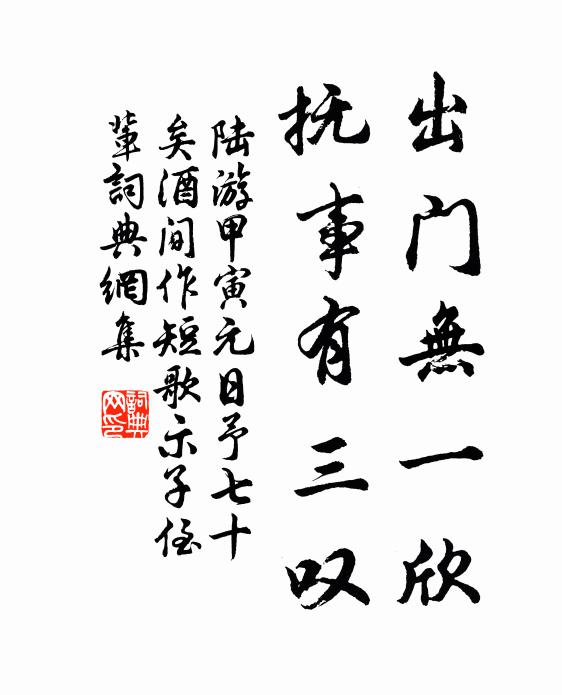 出门無一欣
抚事有三叹
陆游甲寅元日予七十
矣酒间作短歌示子侄
輩詞典網集
詞典网印